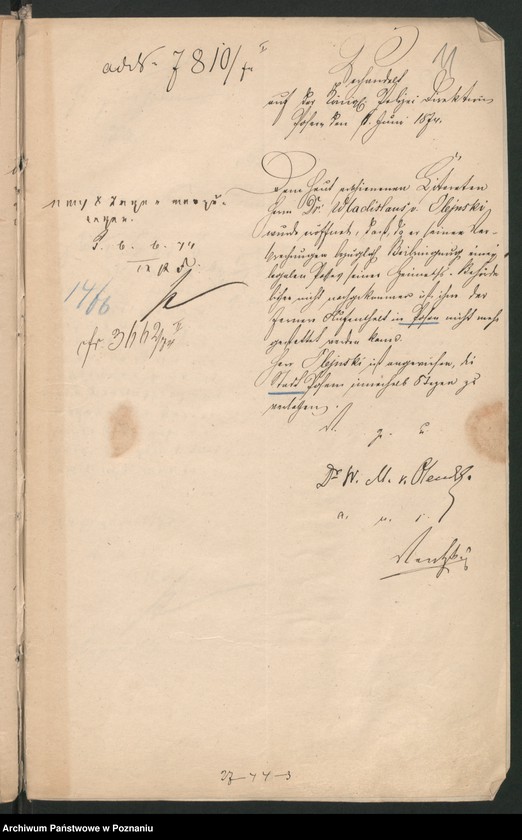 ad № J 810/74 II
Verhandelt
auf der Königl. Polizei Direktion
Posen den 6. Juni 1874.
Dem heut erschienenen Literaten
Herrn Dr. Wladislaus v. Olejnski
wurde eröffnet, daß, da er seinen Ver-
sprechungen bezüglich Beibringung eines
legalen Passes seiner Heimaths-Behörde
bisher nicht nachgekommen ist, ihm der
fernere Aufenthalt in Posen nicht mehr
gestattet werden kann.
Herr Olejnski ist angewiesen, die
Stadt Posen innerhalb 8 Tagen zu
verlassen.
V. g. u.
Dr W. M. v.
a. u. s.
J. 6. 6. 74
14/6
cfr. 3662/74 II
Archiwum Państwowe w Poznaniu